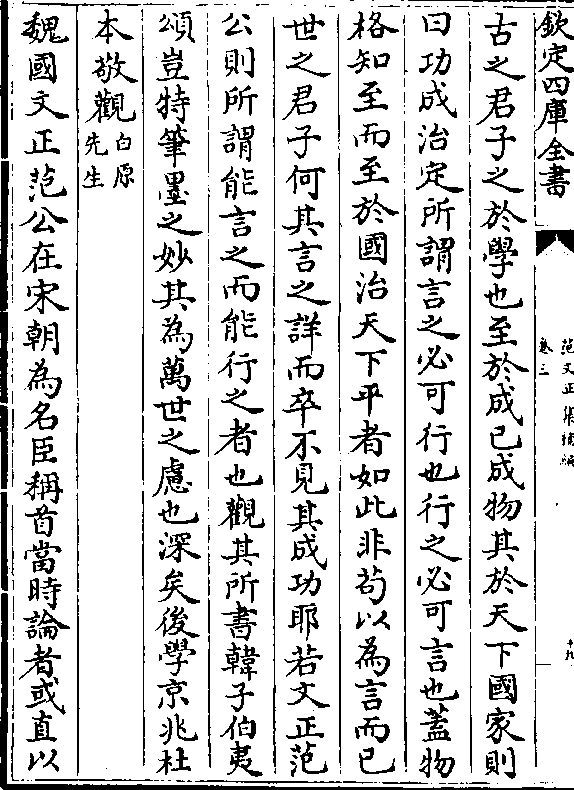 欽定四庫全書
范文正集補編
卷三
十九
古之君子之於學也至於成已成物其於天下國家則
曰功成治定所謂言之必可行也行之必可言也蓋物
格知至而至於國治天下平者如此非茍以為言而已
世之君子何其言之詳而卒不見其成功耶若文正范
公則所謂能言之而能行之者也觀其所書韓子伯夷
頌豈特筆墨之妙其為萬世之慮也深矣後學京兆杜
本敬觀白原先生
魏國文正范公在宋朝為名臣稱首當時論者或直以